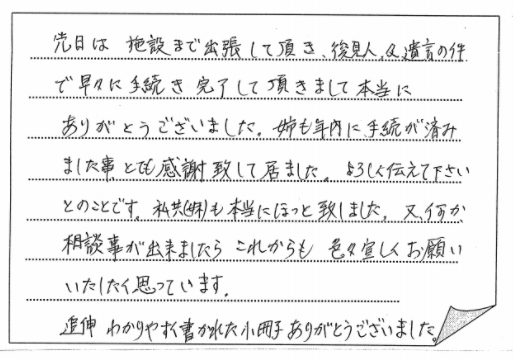 先日は 施設まで出張して頂き、後見人、&遺言の件
で早々に手続き 完了して頂きまして本当に
ありがとうございました。姉も年内に手続が済み
ました事、とても感謝致して居ました。よろしく伝えて下さい
とのことです。私共(妹)も本当にほっと致しました。又、何か
相談事が出来ましたら これからも 色々宜しくお願い
いたしたく思っています。
追伸 わかりやすく書かれた小冊子ありがとうございました。